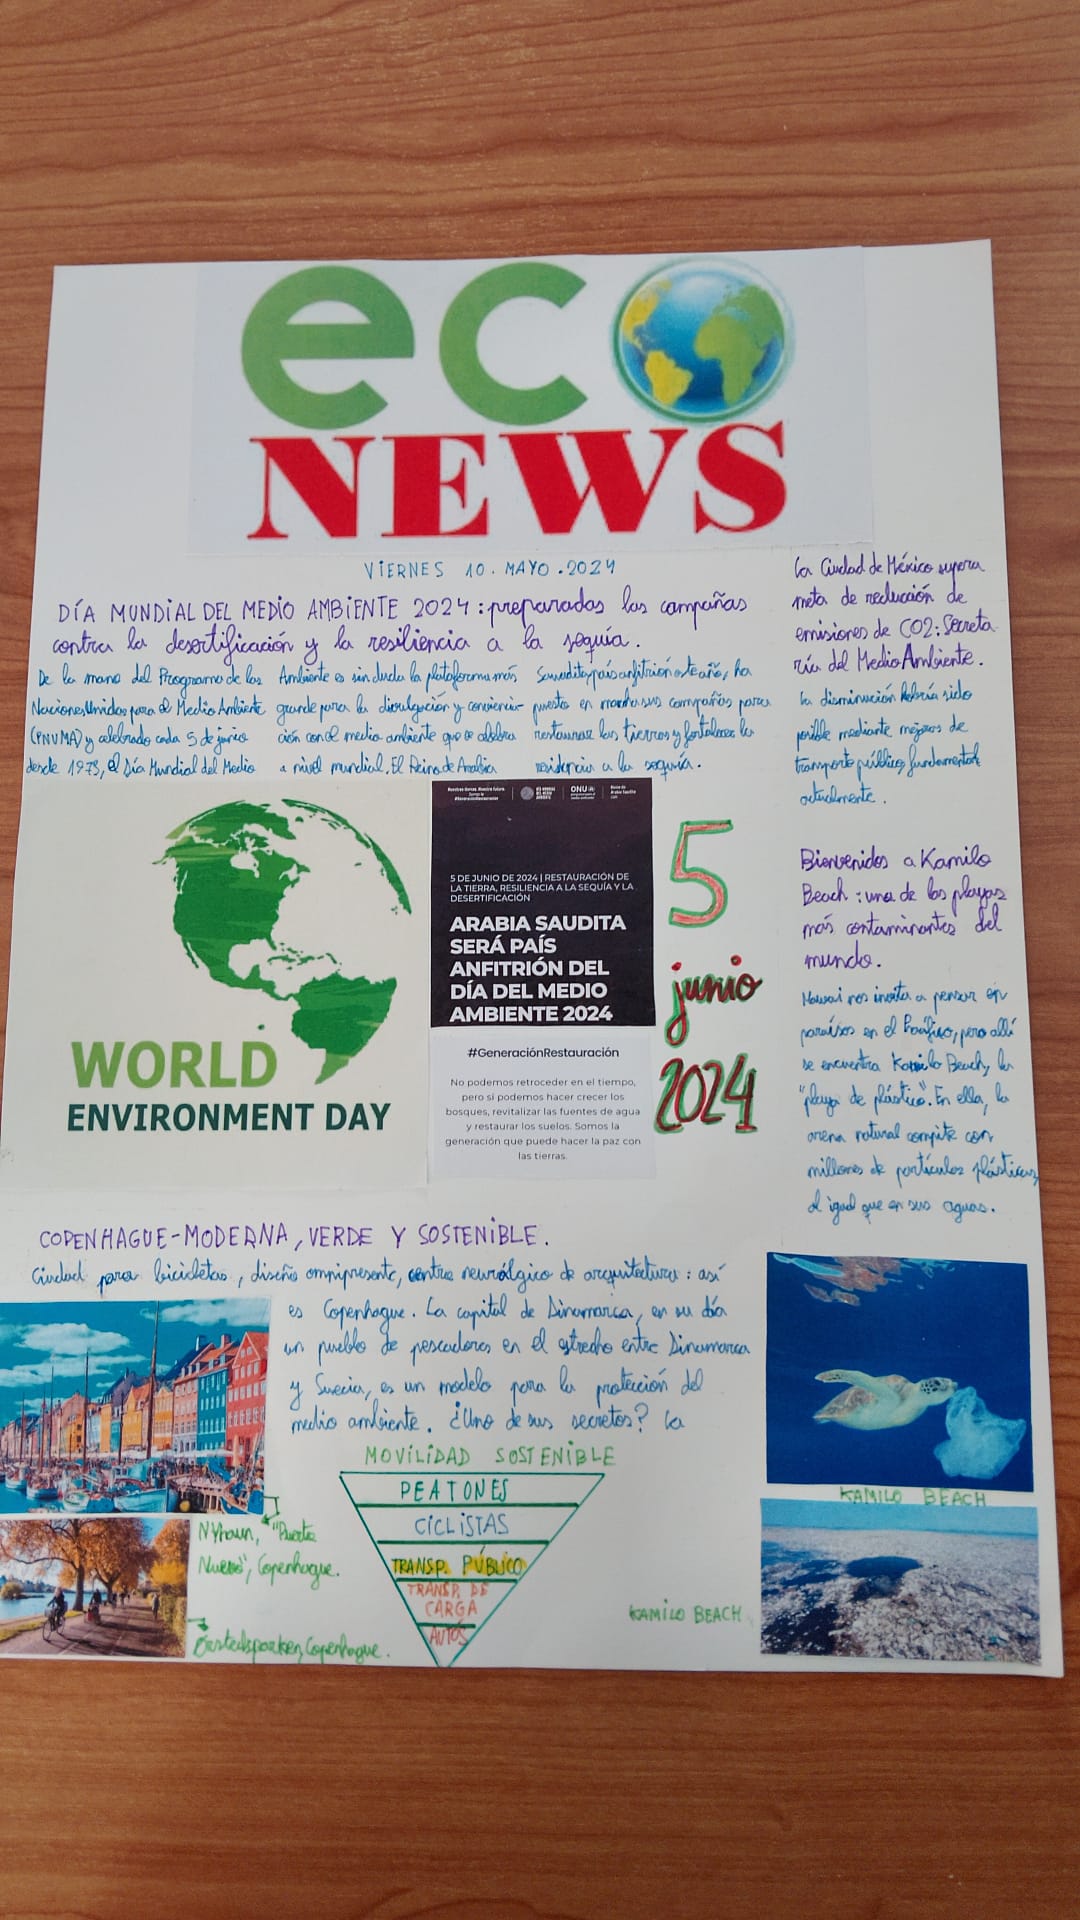 eco
NEWS
VIERNES 10. MAYO. 2024
DÍA MUNDIAL DEL MEDIO AMBIENTE 2024: preparadas las campañas
contra la desertificación y la resiliencia a la sequía.
De la mano del Programa de las
Naciones Unidas para el Medio Ambiente
(PNUMA) y celebrado cada 5 de junio
desde 1973, el Día Mundial del Medio
Ambiente es sin duda la plataforma más
grande para la divulgación y conciencia-
ción con el medio ambiente que se celebra
a nivel mundial. El Reino de Arabia
Saudita, país anfitrión este año, ha
puesto en marcha sus campañas para
restaurar las tierras y fortalecer la
resiliencia a la sequía.
La Ciudad de México supera
meta de reducción de
emisiones de CO2: Secreta
ría del Medio Ambiente.
La disminución habría sido
posible mediante mejoras de
transporte público, fundamental
actualmente.
WORLD
ENVIRONMENT DAY
Nuestras tierras. Nuestro futuro.
Somos la
#GeneraciónRestauración
DÍA MUNDIAL
DEL MEDIO
AMBIENTE
ONU
5 DE JUNIO DE 2024 | RESTAURACIÓN DE
LA TIERRA, RESILIENCIA A LA SEQUÍA Y LA
DESERTIFICACIÓN
ARABIA SAUDITA
SERÁ PAÍS
ANFITRIÓN DEL
DÍA DEL MEDIO
AMBIENTE 2024
#GeneraciónRestauración
No podemos retroceder en el tiempo,
pero sí podemos hacer crecer los
bosques, revitalizar las fuentes de agua
y restaurar los suelos. Somos la
generación que puede hacer la paz con
las tierras.
5
junio
2024
Bienvenidos a Kamilo
Beach: una de las playas
más contaminantes del
mundo.
Hawai nos invita a pensar en
paraísos en el Pacífico, pero allí
se encuentra Kamilo Beach, la
"playa de plástico". En ella, la
arena natural compite con
millones de partículas plásticas,
al igual que en sus aguas.
COPENHAGUE-MODERNA, VERDE Y SOSTENIBLE.
Ciudad para bicicletas, diseño omnipresente, centro neurálgico de arquitectura: así
es Copenhague. La capital de Dinamarca, en su día
un pueblo de pescadores en el estrecho entre Dinamarca
y Suecia, es un modelo para la protección del
medio ambiente. ¿Uno de sus secretos? La
MOVILIDAD SOSTENIBLE
PEATONES
CICLISTAS
TRANSP. PÚBLICO
TRANSP. DE
CARGA
AUTOS
Nyhavn, "Puerto
Nuevo", Copenhague.
Ørstedsparken, Copenhague.
KAMILO BEACH
KAMILO BEACH